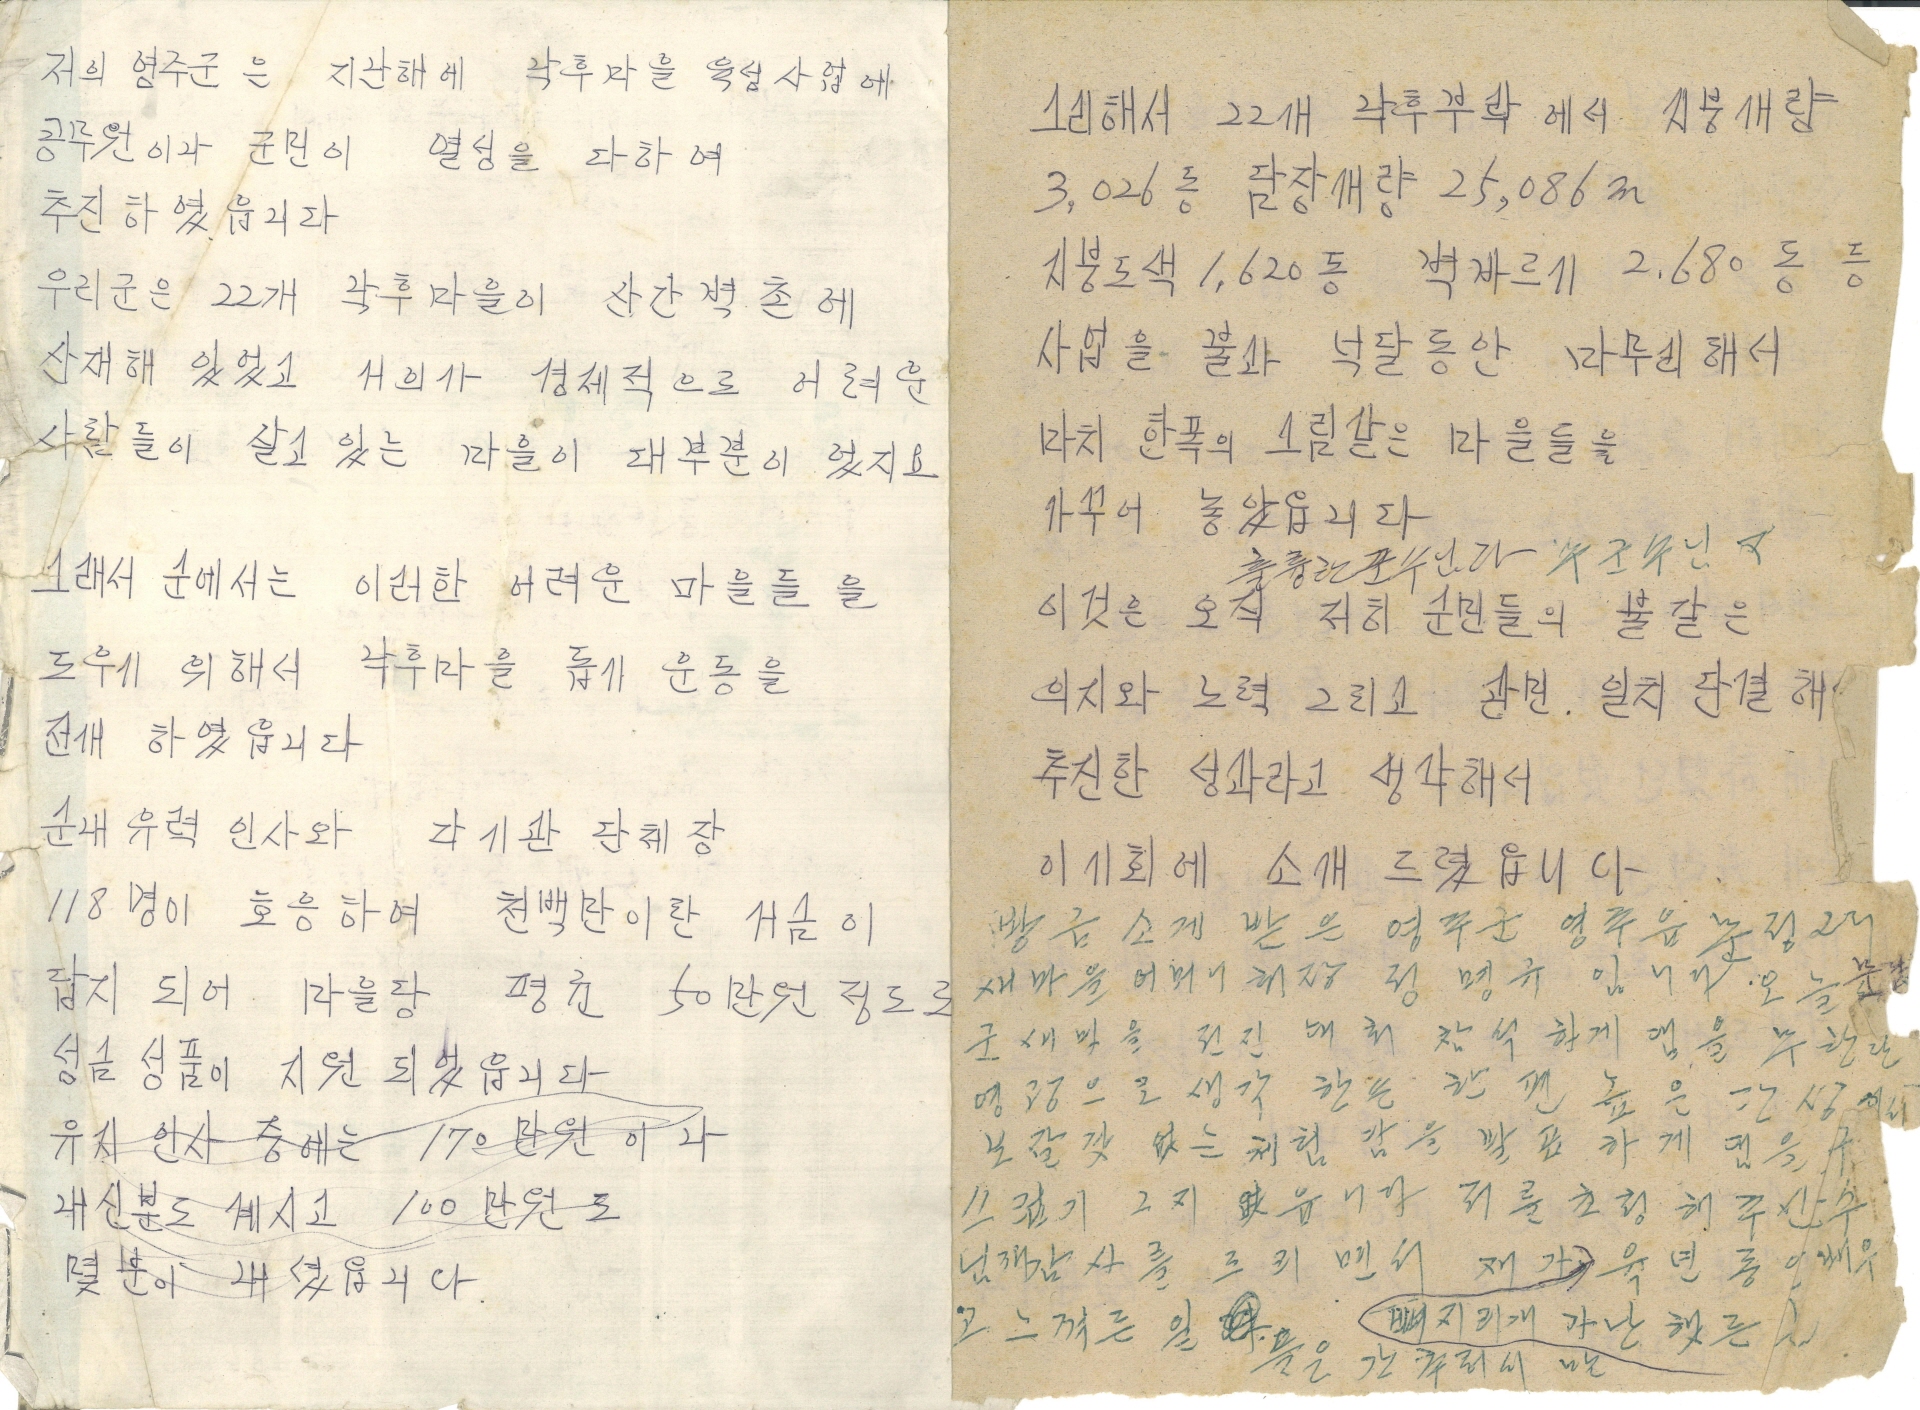 저의 영주군 은 지난해에 낙후마을 육성사업에
공무원이나 군민이 열성을 다하여
추진 하였읍니다
우리군은 22개 낙후마을이 산간벽촌에
산재해 있었고 거의가 경제적으로 어려운
사람들이 살고 있는 마을이 대부분이 었지요
그래서 군에서는 이러한 어려운 마을들을
도우기 위해서 낙후마을 돕기 운동을
전개 하였읍니다
군내 유력 인사와 각 기관 단체장
118명이 호응하여 천백만이란 거금이
답지 되어 마을당 평균 50만원 정도로
성금 성품이 지원 되었읍니다
유지 인사 중에는 170만원 이나
내신분도 계시고 100만원도
몇분이 내셨읍니다
그리해서 22개 낙후부락에서 지붕개량
3,026동 담장개량 25,086m
지붕도색 1,620동 벽바르기 2.680동 등
사업을 불과 넉달동안 마무리해서
마치 한폭의 그림같은 마을들을
가꾸어 놓았읍니다
이것은 오직 저희 군민들의 불같은
의지와 노력 그리고 관민. 일치 단결해
추진한 성과라고 생각해서
이기회에 소개 드렸읍니다
방금 소게 받은 영주군 영주읍
새마을어머니 회장 정명규 입니다 오늘
군 새마을 전진 대회 참석 하게 뎀을 무한한
영광으로 생각 한는 한편 높은 단상에서
보잘것 없는 체험감을 발표 하게 뎀을
쓰럽기 그지 없읍니다 저를 초청 해 주신
님께감사를 드리면서 제가 육년 동안배우
고 느껴든 일 뼈지리개 가난했든
들은 간추려서